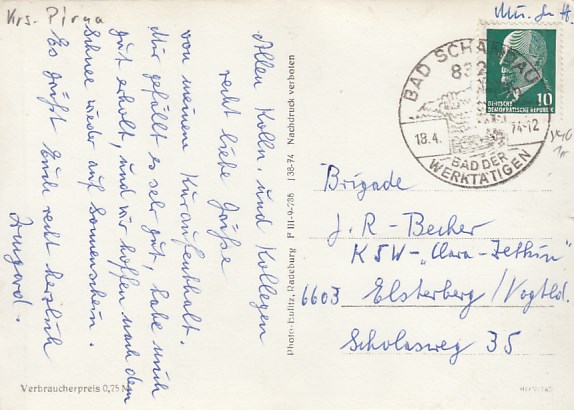 Krs. Pirna
Allen Kolln. und Kollegen
recht liebe Grüße
von meinem Kuraufenthalt.
Mir gefällt es sehr gut, habe mich
gut erholt, und wir hoffen nach dem
Schnee wieder auf Sonnenschein.
Es grüßt Euch recht herzlich
Irmgard.
Verbraucherpreis 0,75 M
Photo-Eulitz, Radeburg P III-9-286 J 38-74 Nachdruck verboten
BAD SCHANDAU
832
18.4. 74-12
BAD DER
WERKTÄTIGEN
DEUTSCHE
DEMOKRATISCHE REPUBLIK
10
Brigade
J. R - Becher
KSW - „Clara-Zetkin"
6603 Elsterberg / Vogtld.
Scholasweg 35